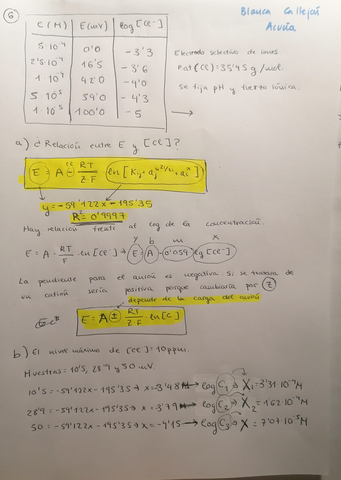 ⑥
Blanca Callejas
Acuña
C (M) E(mV) log[Cl⁻]
5·10⁻⁴ 0'0 -3'3
2'5·10⁻⁴ 16'5 -3'6
1·10⁻⁴ 42'0 -4'0
5·10⁻⁵ 59'0 -4'3
1·10⁻⁵ 100'0 -5
Electrodo selectivo de iones
Pat (Cl) = 35'45 g/mol.
Se fija pH y fuerza iónica.
a) ¿Relación entre E y [Cl⁻]?
E = A - RT/Z·F · ln[Kij·aj + ai]
y = -59'122x - 195'35
R² = 0'9997
Hay relación frente al log de la concentración.
y b m x
E = A - RT/F · ln[Cl⁻] → E = A - 0'059 log[Cl⁻]
La pendiente para el anión es negativa. Si se tratara de
un catión sería positiva porque cambiaría por Z
depende de la carga del
E = A ± RT/Z·F · ln[C]
b) El nivel máximo de [Cl⁻] = 10ppm.
Muestras: 10'5, 28'9 y 50 mV.
10'5 = -59'122x - 195'35 → x = -3'48 → log C₁ → X₁ = 3'31·10⁻⁴M
28'9 = -59'122x - 195'35 → x = -3'79 → log C₂ → X₂ = 1'62·10⁻⁴M
50 = -59'122x - 195'35 → x = -4'15 → log C₃ → X = 7'07·10⁻⁵M